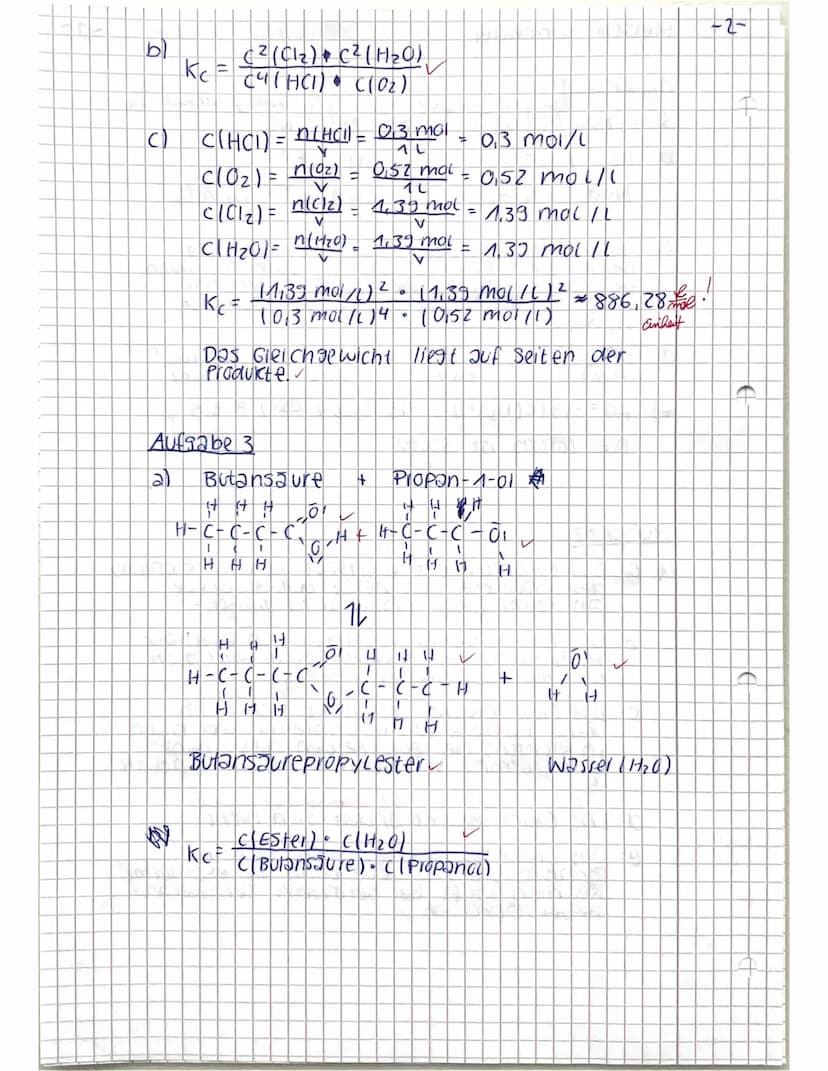 -2-
b) Kc = c²(Cl₂) • c²(H₂O) / c⁴(HCl) • c(O₂) ✓
c) c(HCl) = n(HCl) / V = 0,3 mol / 1L = 0,3 mol/L
c(O₂) = n(O₂) / V = 0,52 mol / 1L = 0,52 mol/l
c(Cl₂) = n(Cl₂) / V = 1,39 mol / V = 1,39 mol/L
c(H₂O) = n(H₂O) / V = 1,39 mol / V = 1,39 mol/l
Kc = (1,39 mol/L)² • (1,39 mol/L)² / (0,3 mol/L)⁴ • (0,52 mol/l) ≈ 886,28 l/mol !
Einheit
Das Gleichgewicht liegt auf Seiten der
Produkte. ✓
Aufgabe 3
a) Butansäure + Propan-1-ol
H H H O ✓ H H H
H-C-C-C-C O H + H-C-C-C-O ✓
H H H H H H H
⇌
H H H O H H H ✓ O ✓
H-C-C-C-C O -C-C-C-H + H H
H H H H H H
Butansäurepropylester ✓ Wasser (H₂O)
Kc = c(Ester) • c(H₂O) / c(Butansäure) • c(Propanol) ✓